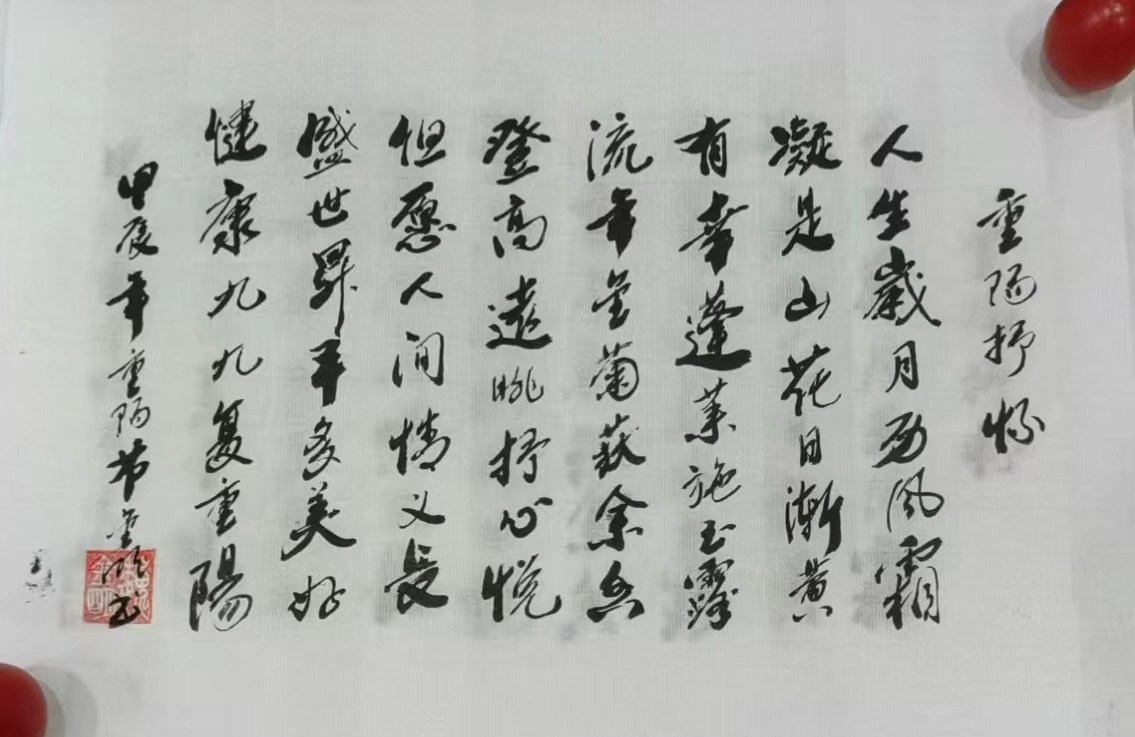 重陽抒怀
人生歲月历风霜
凝是山花日漸黄
有幸蓬莱施玉露
流年金菊获余香
登高遠眺抒心悦
但愿人间情义長
盛世昇平多美好
健康九九复重陽
甲辰年重陽 金 书